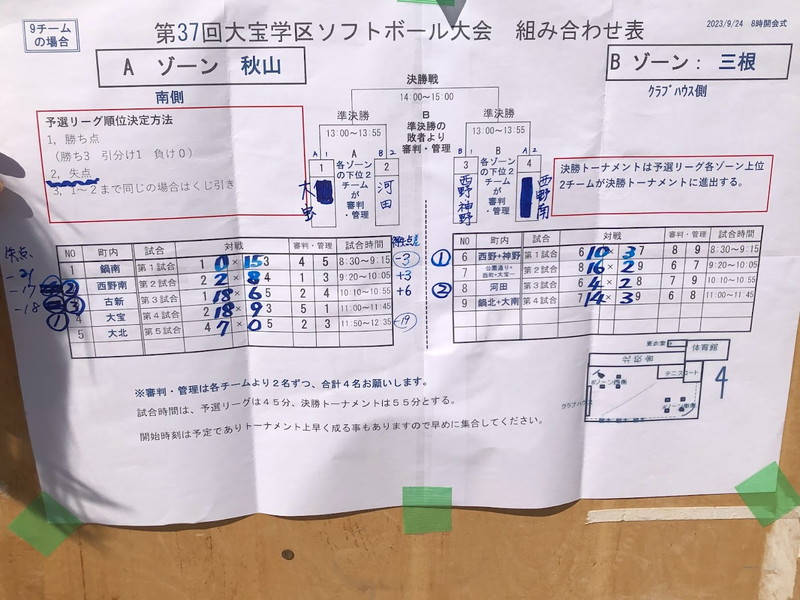 9チーム
の場合
第37回大宝学区ソフトボール大会 組み合わせ表
2023/9/24 8時開会式
A ゾーン 秋山
B ゾーン: 三根
南側
クラブハウス側
決勝戦
14:00～15:00
予選リーグ順位決定方法
1, 勝ち点
(勝ち3 引分け1 負け0)
2, 失点
3, 1～2まで同じの場合はくじ引き
準決勝
13:00～13:55
B
準決勝の
敗者より
審判・管理
準決勝
13:00～13:55
A 1
A
B 2
B 1
B
A 2
1
各ゾーン
の下位2
チームが
審判・管理
2
河田
3
西野神野
各ゾーン
の下位2
チームが
審判・管理
4
西野南
決勝トーナメントは予選リーグ各ゾーン上位
2チームが決勝トーナメントに進出する。
失点
NO 町内 試合 対戦 審判・管理 試合時間
1 鍋南 第1試合 1 0 × 15 3 4 5 8:30～9:15 -3
2 西野南 第2試合 2 2 × 8 4 1 3 9:20～10:05 +3
3 古新 第3試合 1 18 × 6 5 2 4 10:10～10:55 +6
4 大宝 第4試合 2 18 × 9 3 5 1 11:00～11:45
5 大北 第5試合 4 7 × 0 5 2 3 11:50～12:35 -19
-21
-17 ②
-18 ③
①
NO 町内 試合 対戦 審判・管理 試合時間
① 6 西野+神野 第1試合 6 10 × 3 7 8 9 8:30～9:15
7 公園通り・西町・大宝一 第2試合 8 16 × 2 9 6 7 9:20～10:05
② 8 河田 第3試合 6 4 × 2 8 7 9 10:10～10:55
9 鍋北+大南 第4試合 7 14 × 3 9 6 8 11:00～11:45
体育館
テニスコート
クラブハウス
4
※審判・管理は各チームより2名ずつ、合計4名お願いします。
試合時間は、予選リーグは45分、決勝トーナメントは55分とする。
開始時刻は予定でありトーナメント上早く成る事もありますので早めに集合してください。